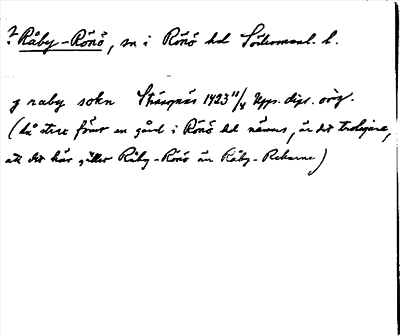 ? Råby-Rönö, sn i Rönö hd Södermanl. l.
j raby sokn Strängnäs 1423 11/4 Upps. dipl. orig.
(då strax förut en gård i Rönö hd nämns, är det troligare,
att det här gäller Råby-Rönö än Råby-Rekarne)